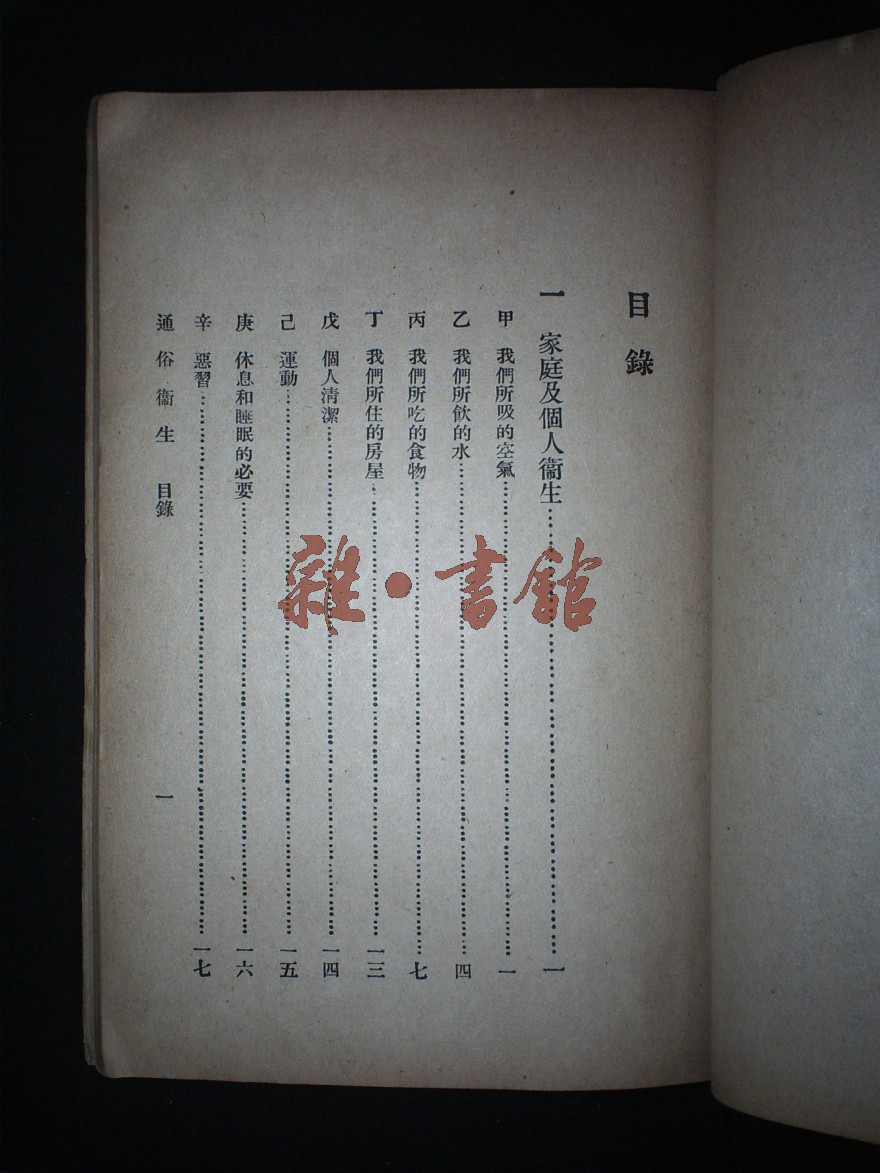 目錄
一 家庭及個人衞生……一
甲 我們所吸的空氣……一
乙 我們所飮的水……四
丙 我們所吃的食物……七
丁 我們所住的房屋……一三
戊 個人清潔……一四
己 運動……一五
庚 休息和睡眠的必要……一六
辛 惡習……一七
通俗衞生 目錄 一
雜·書館